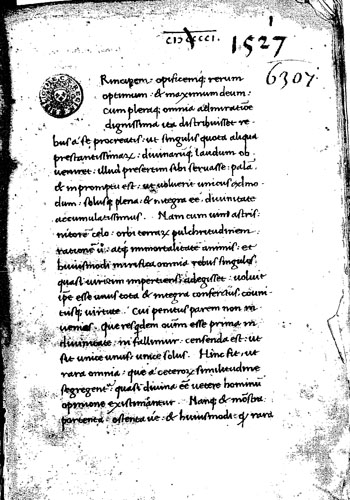 CIƆCCCCI.
1
1527
6307
Rincipem: opificemq; rerum
optimum: & maximum deum:
cum pleraq; omnia admiratiõe
dignissima ita distribuisset re-
bus a se procreatis: ut singulis quota aliqua
prestantissimaꝝ: divinarũq; laudum ob
veniret: illud presertim sibi servasse: palã
& in promptu est: ut voluerit unicus esse
dum: solusq; plena: & integra ee: divinitate
accumulatissimus. Nam cum vim astris:
nitorẽ celo: orbi terraꝝ pulchritudinem
rationẽ: atq; immortalitatẽ animis: et
huiusmodi mirifica omnia rebus singulis
quasi viritim impertiens: adegisset: voluit
ipe esse unus tota & integra confertus
tusq; virtute. Cui penitus parem non in
venias. Que res quidem esse prima in
divinitate: ni fallimur: censenda est: ut
sit unice unus: unice solus. Hinc fit: ut
rara omnia: que a ceteroꝝ similitudine
segregent: quasi divina ee vetere hominũ
opinione existimantur. Nanq; & mõstra:
portenta: ostenta ve: & huiusmodi: rara